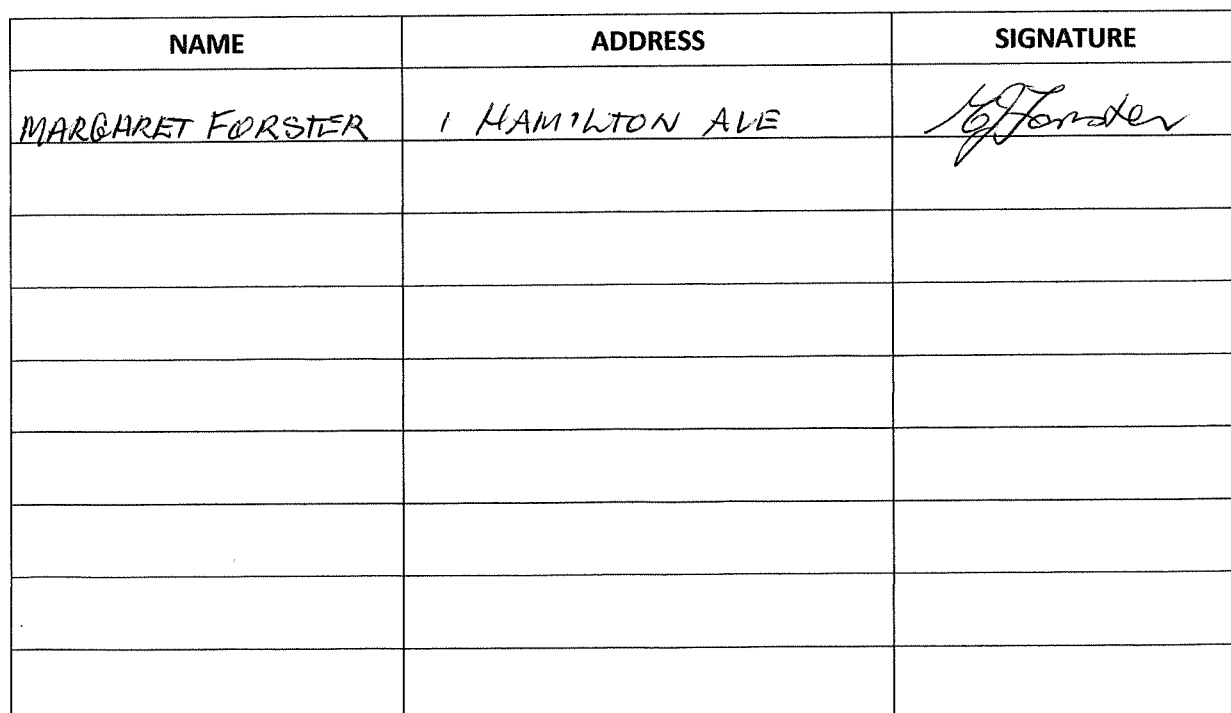 NAME ADDRESS SIGNATURE
MARGARET FORSTER 1 HAMILTON AVE MJForster